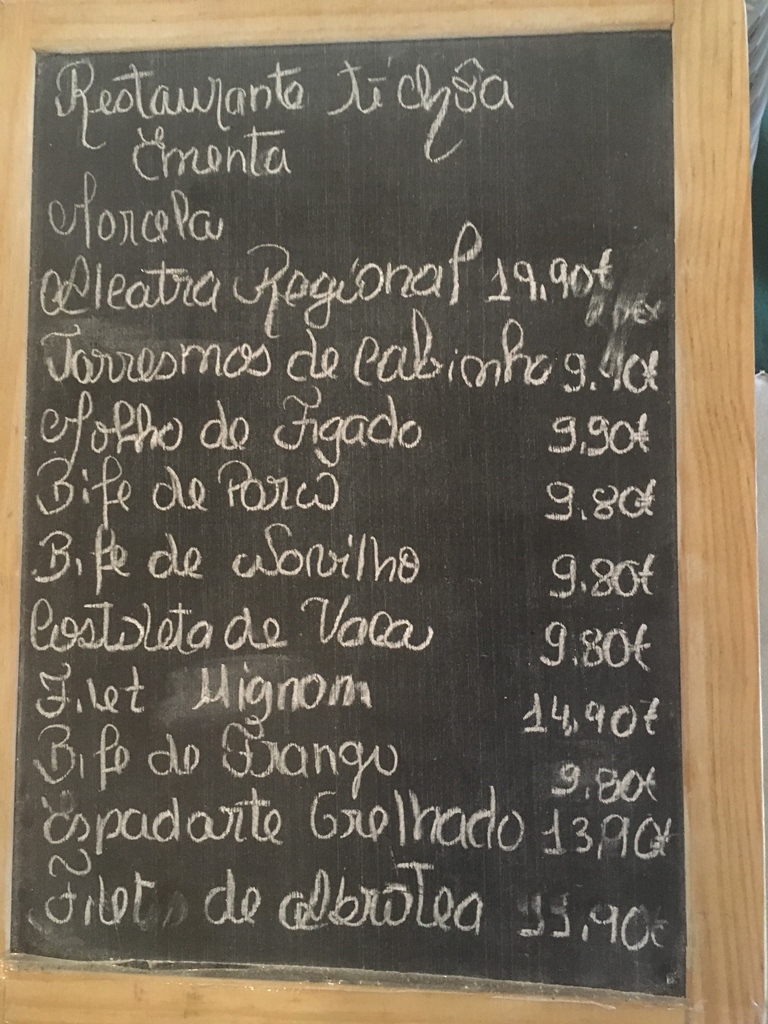 Restaurante ti chôa
Ementa
Morcela
Alcatra Regional 19.90€
Torresmos de Cabinho 9.90€
Molho de Figado 9,90€
Bife de Porco 9.80€
Bife de Novilho 9.80€
Costoleta de Vaca 9.80€
Filet Mignom 14,90€
Bife de Frango 9.80€
Espadarte Grelhado 13,90€
Filet de Abrótea 11,90€